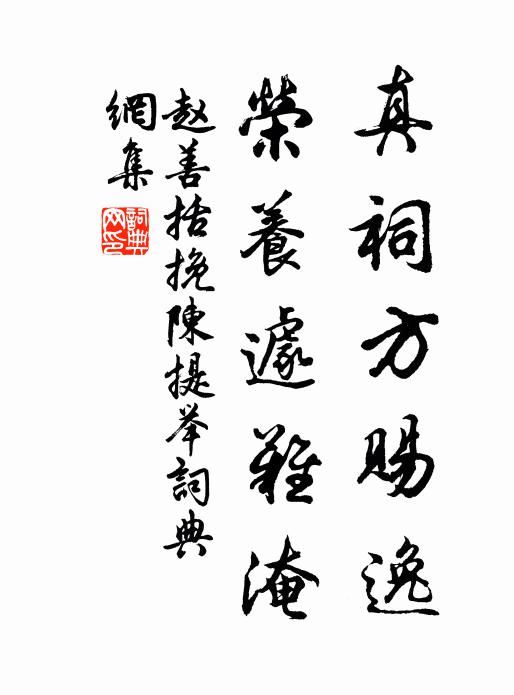 真祠方赐逸
榮養遽難淹
赵善括挽陳提举詞典
網集
詞典網印